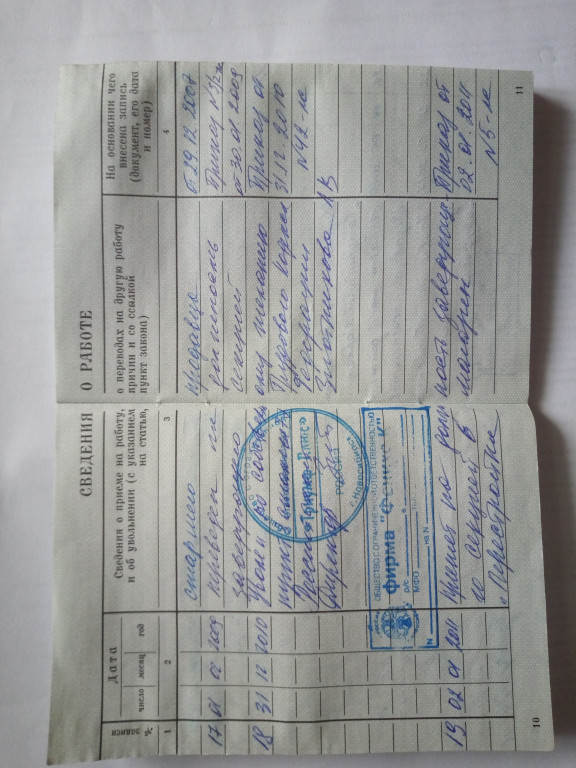 СВЕДЕНИЯ О РАБОТЕ
№ записи
Дата
число месяц год
Сведения о приеме на работу, о переводах на другую работу
и об увольнении (с указанием причин и со ссылкой
на статью, пункт закона)
На основании чего
внесена запись
(документ, его дата
и номер)
1 2 3 4
старшего продавца от 29.12.2007
17 01 02 2009 переведен на должность Приказ №
заведующего секцией от 30.01.2009
18 31 12 2010 Уволен по собственному желанию Приказ от
Трудового кодекса 31.12.2010
Российской Федерации №42-лс
Директор
РОССИЯ
г. Новосибирск
ОБЩЕСТВО С ОГРАНИЧЕННОЙ ОТВЕТСТВЕННОСТЬЮ
фирма "Феникс К"
р/с
МФО
N на N
19 02 01 2011 Принят на должность заведующ Приказ от
секцией в магазин 02.01.2011
"Перестройка" №5-лс
10 11